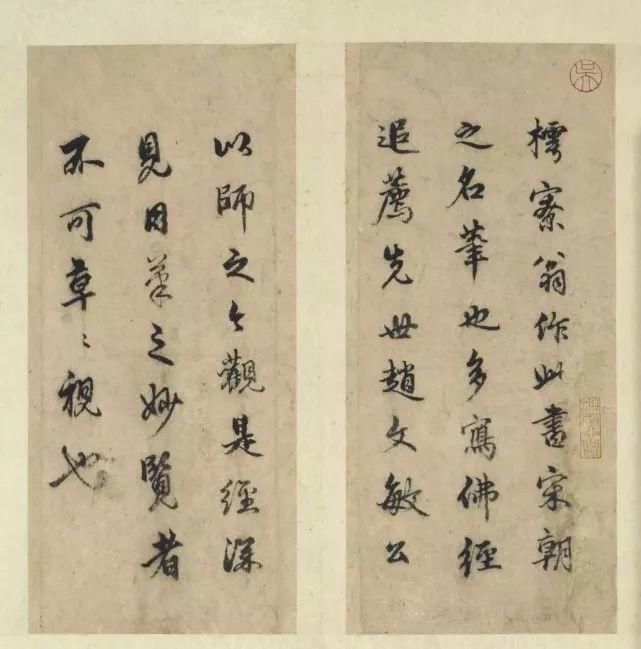 樗寮翁作此書宋朝
之名筆也多寫佛經
追薦先世趙文敏公
以師之今觀是經深
見用筆之妙覽者
不可草〻視也